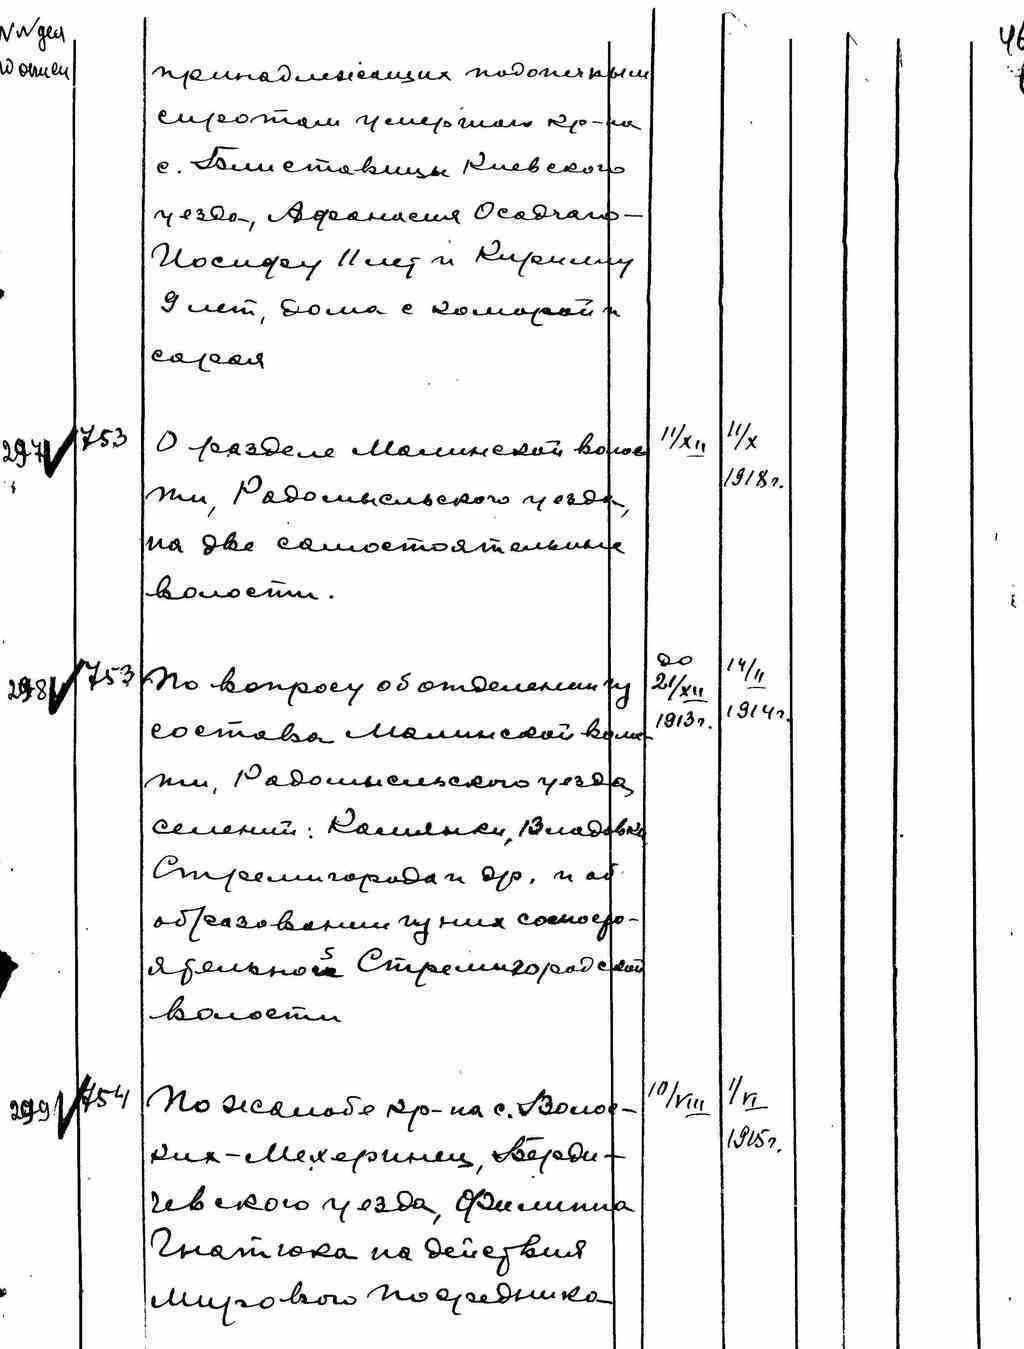 NN дел
по описи
46
принадлежащих подопечным
сиротам умершого кр-на
с. Блиставицы Киевского
уезда, Афанасия Осадчаго—
Иосифу 11 лет и Кириллу
9 лет, дома с коморой и
сарая
297 753 О разделе Малинской волос 11/XII 11/X
ти, Радомысльского уезда, 1918г.
на две самостоятельные
волости.
298 753 По вопросу об отделении из до 21/XII 1913г. 14/II 1914г.
состава Малинской волос-
ти, Радомысльского уезда
селений: Камянки, Владовки
Стремигорода и др. и об
образовании из них самосто-
ятельной Стремигородской
волости
299 754 По жалобе кр-на с. Волос- 10/VIII 1/VI
ких-Мехеринец, Берди- 1915г.
чевского уезда, Филиппа
Гнатюка на действия
Мирового Посредника